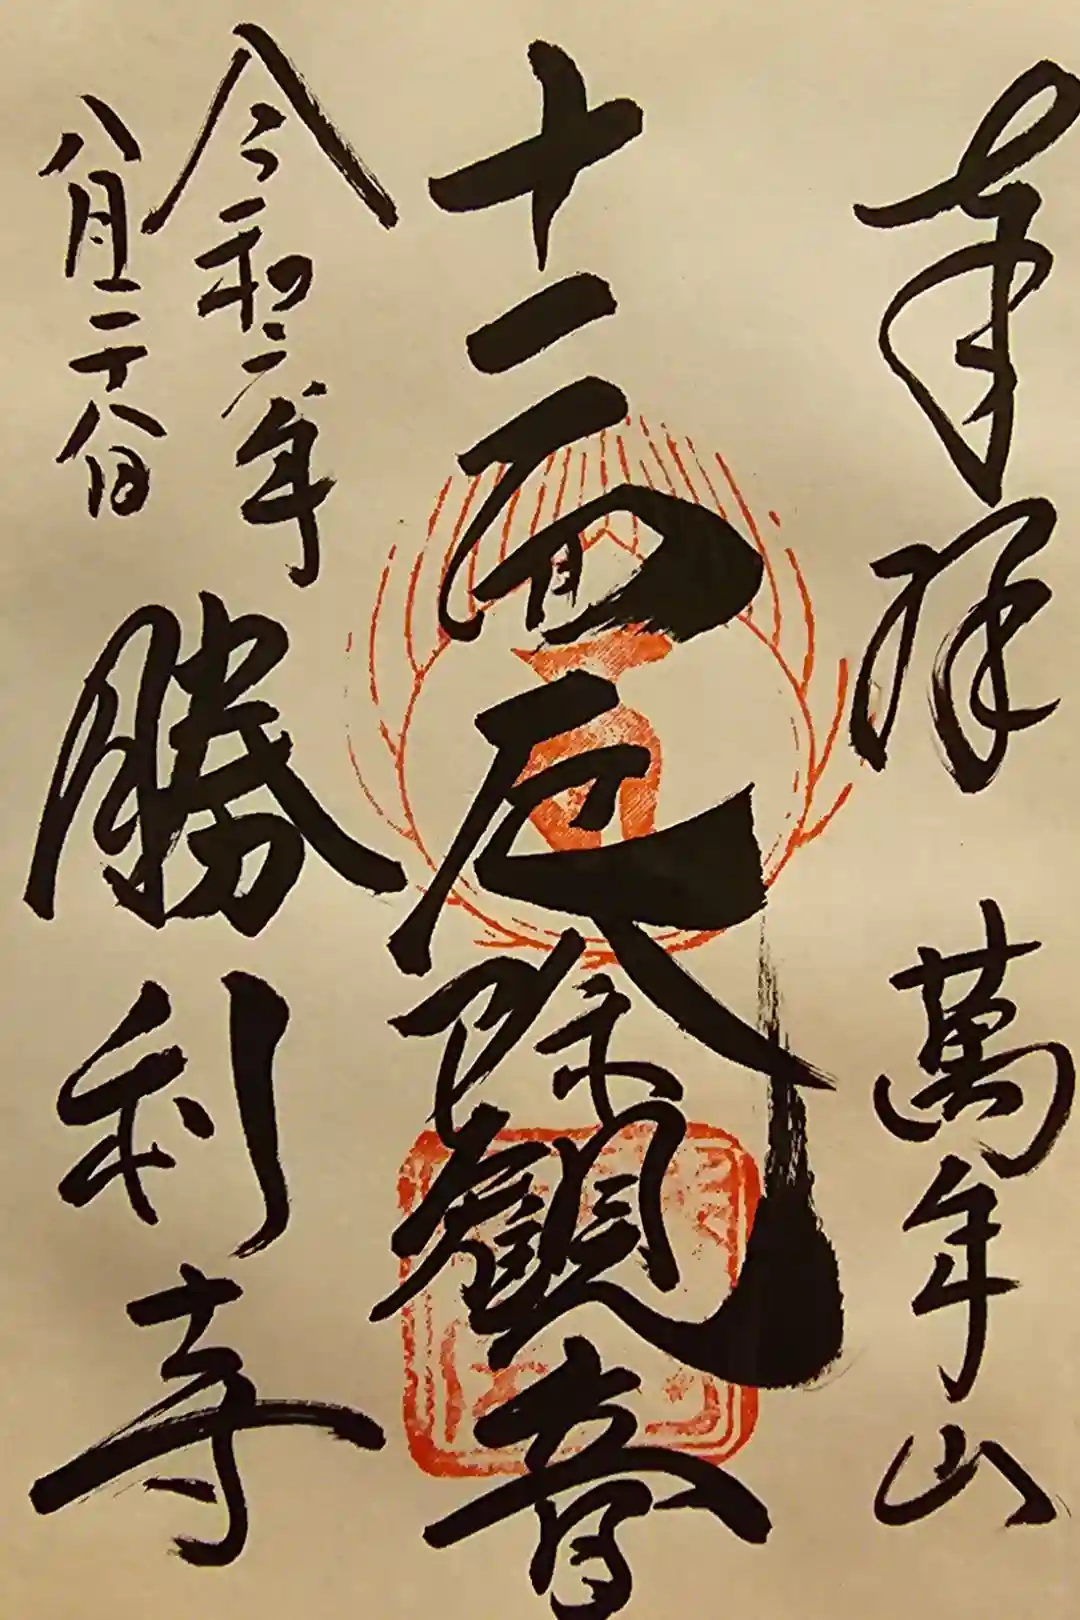 奉拝　萬年山
十一面厄除観音
令和二年
八月二十八日
勝利寺